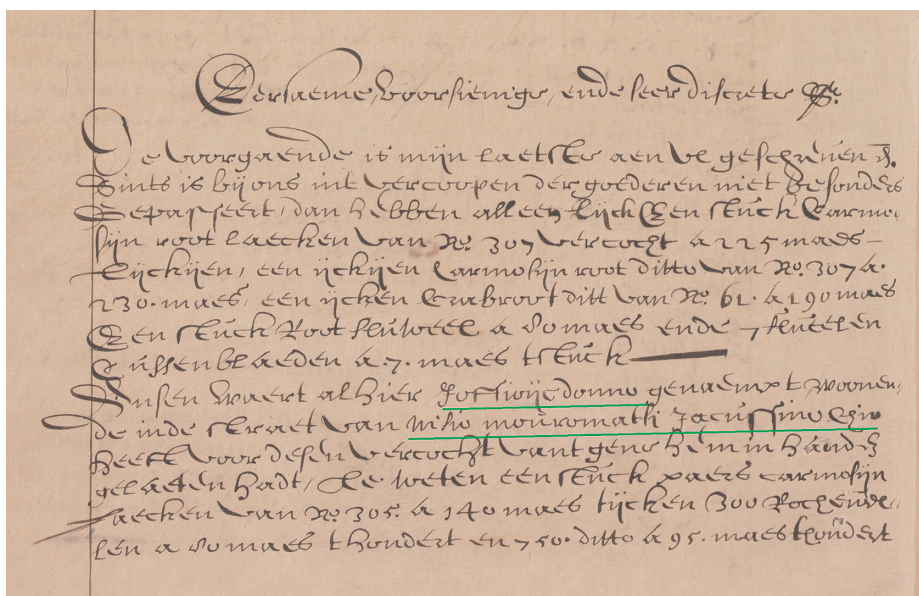 Eersaeme, voorsienige, ende seer discrete Sr.
De voorgaende is mijn laetste aen vl geschreven
Sints is bij ons int vercoopen der goederen niet besonders
Gepasseert, dan hebben alleenlijck Een stuck Carmo-
sijn root laecken van No. 307 vercocht a 225 maes
tijckijen, een ijckijen Carmosijn root ditto van No. 307 a.
230. maes, een ijcken Crabroot ditt van No. 61. a 190 maes
Een stuck Root fluweel a 80 maes ende 7 fluwelen
Cussenblaeden a 7. maes tstuck
Onsen waert alhier genaempt woonen-
de inde straet van
heeft voor desen vercocht tgene hem in handen
gelaeten hadt, Te weten een stuck paers carmosijn
Laecken van No. 305. a 140 maes tijcken 300 Rochevel-
len a 80 maes thondert en 750. ditto a 95. maes thondert